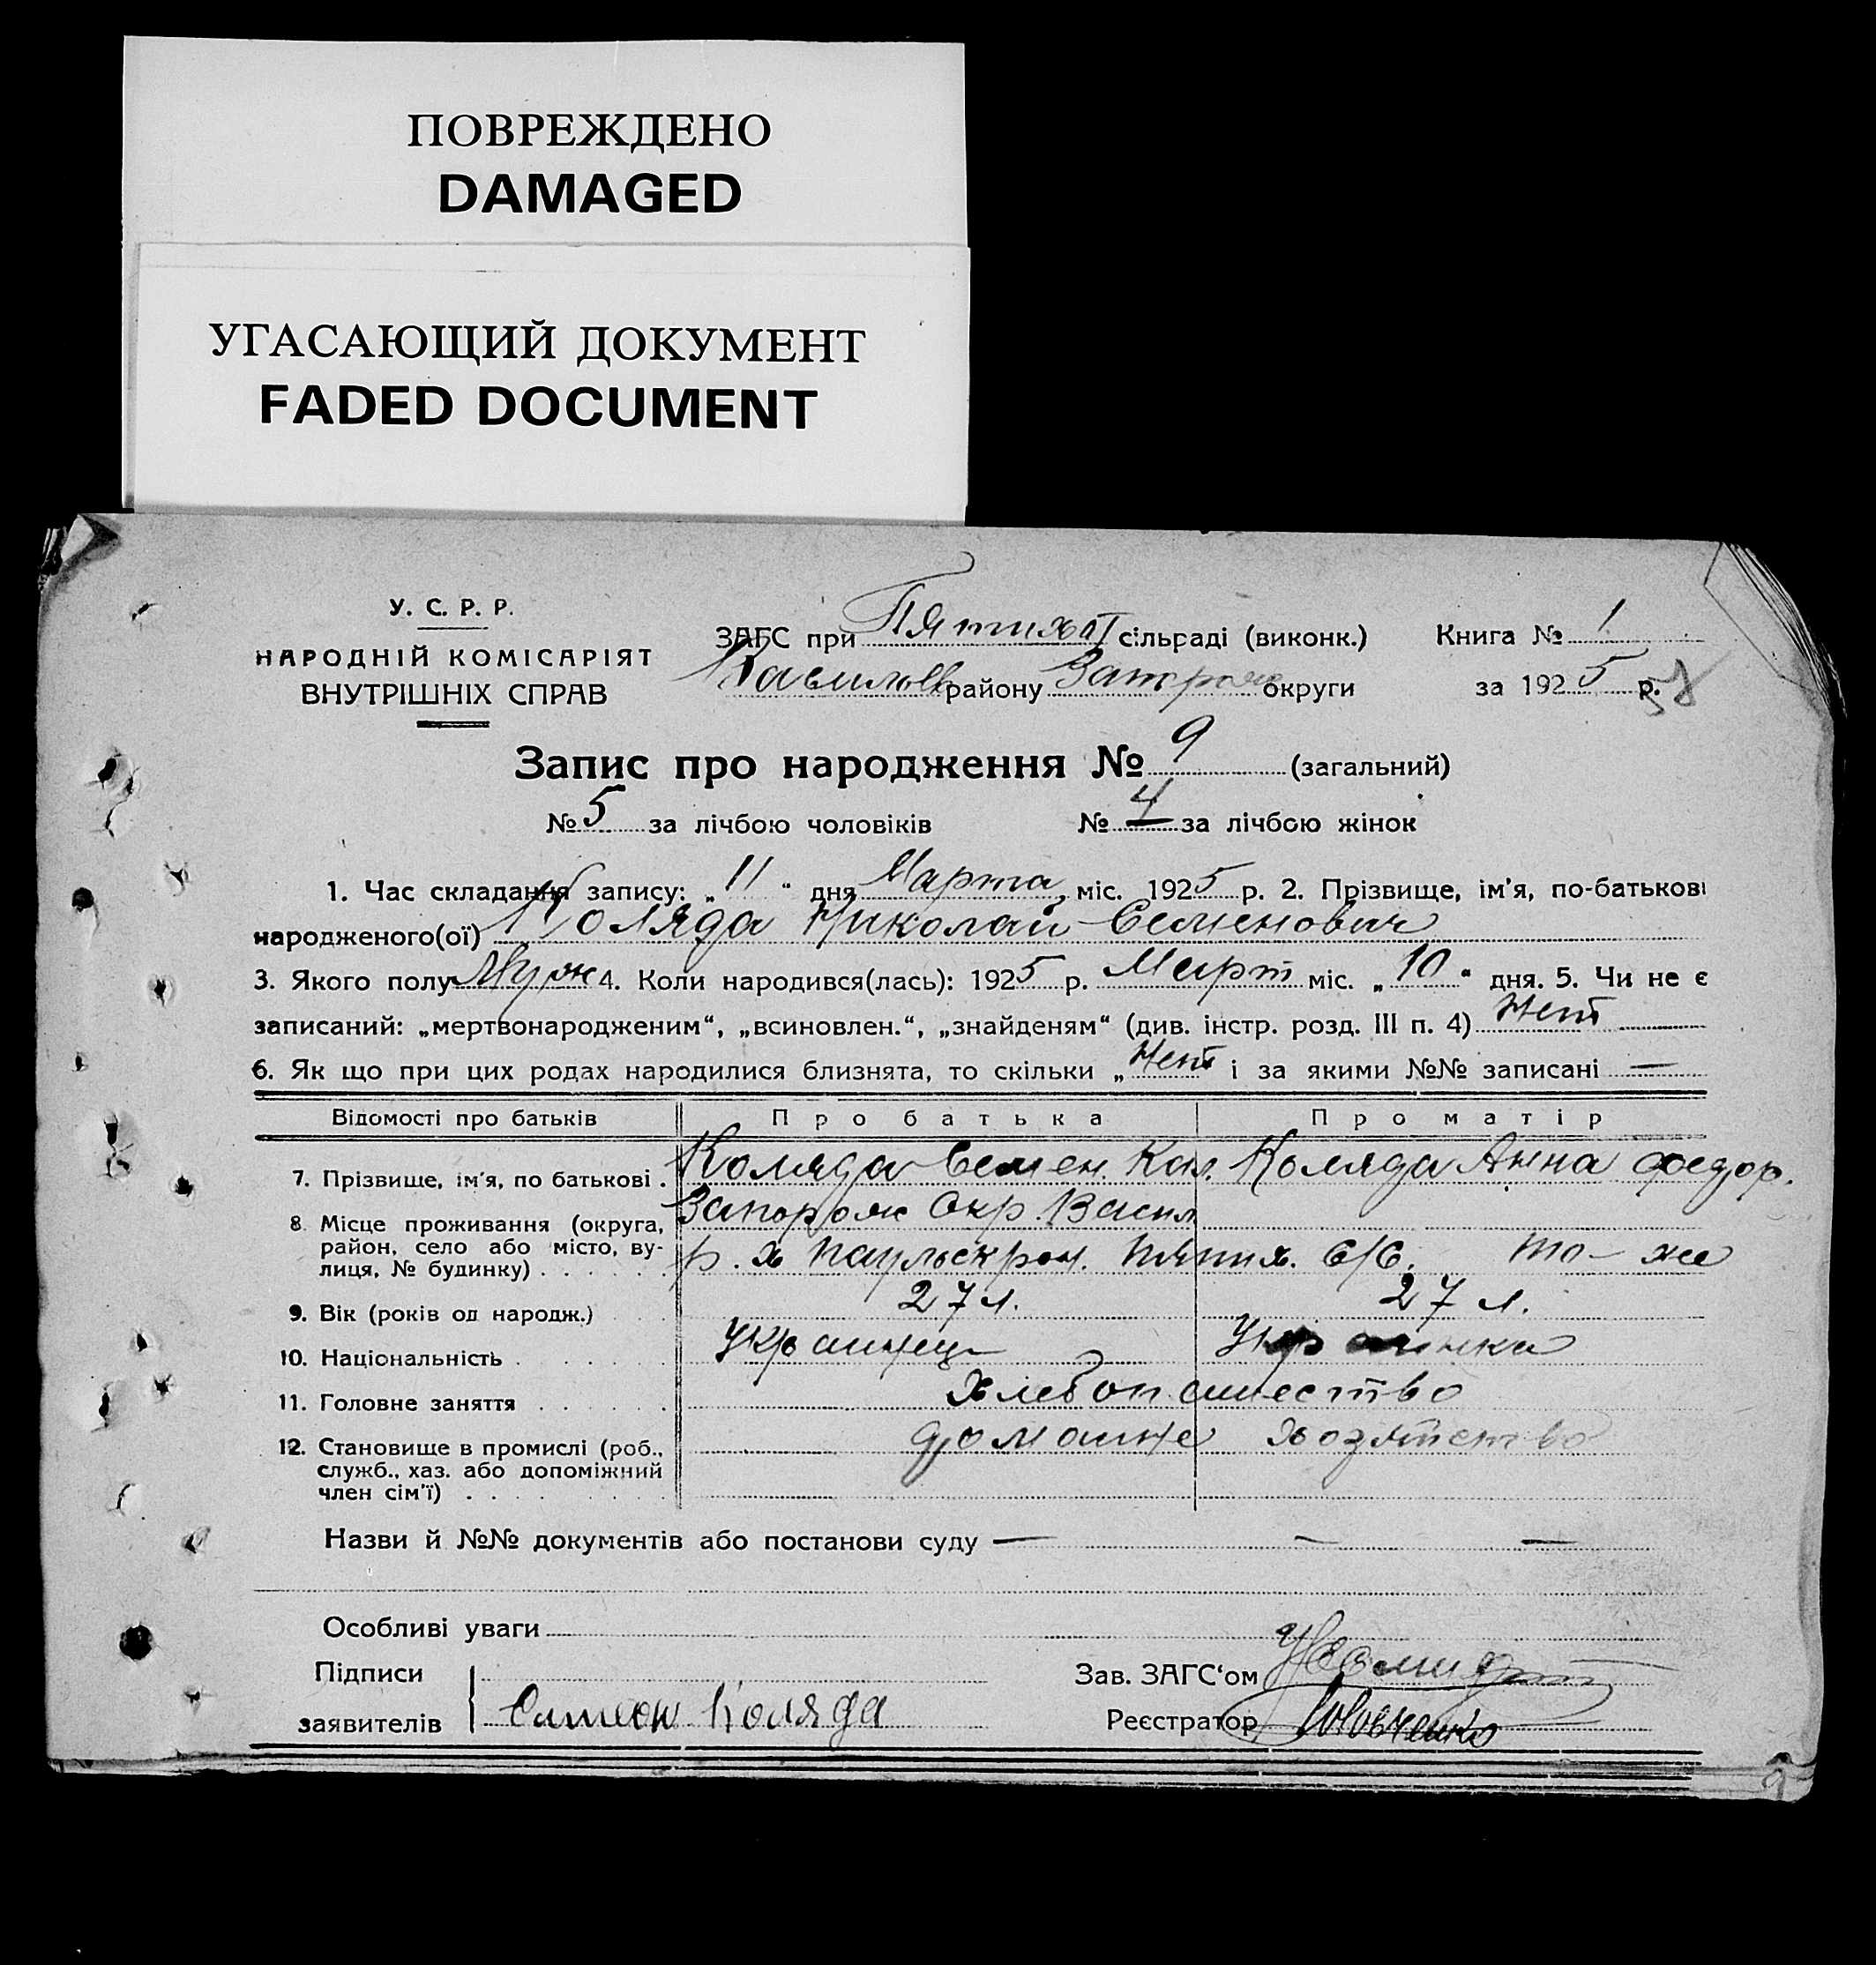 ПОВРЕЖДЕНО
DAMAGED
УГАСАЮЩИЙ ДОКУМЕНТ
FADED DOCUMENT
У. С. Р. Р.
НАРОДНІЙ КОМІСАРІЯТ
ВНУТРІШНІХ СПРАВ
ЗАГС при Пятихат сільраді (виконк.) Книга № 1
Васильев району Запорож округи за 1925 р.
Запис про народження № 9 (загальний)
№ 5 за лічбою чоловіків № 4 за лічбою жінок
1. Час складання запису: „11“ дня Марта міс. 1925 р. 2. Прізвище, ім'я, по-батькові
народженого(ої) Коляда Николай Семенович
3. Якого полу Муж 4. Коли народився(лась): 1925 р. Март міс. „10“ дня. 5. Чи не є
записаний: „мертвонародженим“, „всиновлен.“, „знайденям“ (див. інстр. розд. III п. 4) Нет
6. Як що при цих родах народилися близнята, то скільки „Нет і за якими №№ записані —
Відомості про батьків Про батька Про матір
7. Прізвище, ім'я, по батькові . Коляда Семен Кал. Коляда Анна Федор.
8. Місце проживання (округа, Запорож Окр. Васил
район, село або місто, ву- р. х Паульскрон. Пятих. С/С. то-же
лиця, № будинку)
9. Вік (років од народж.) 27 л. 27 л.
10. Національність Украинец Украинка
11. Головне заняття Хлебопашество
12. Становище в промислі (роб., домашне хозяйство
служб., хаз. або допоміжний
член сім'ї)
Назви й №№ документів або постанови суду — — —
Особливі уваги
Підписи Зав. ЗАГС'ом
заявителів Семеон Коляда Реєстратор